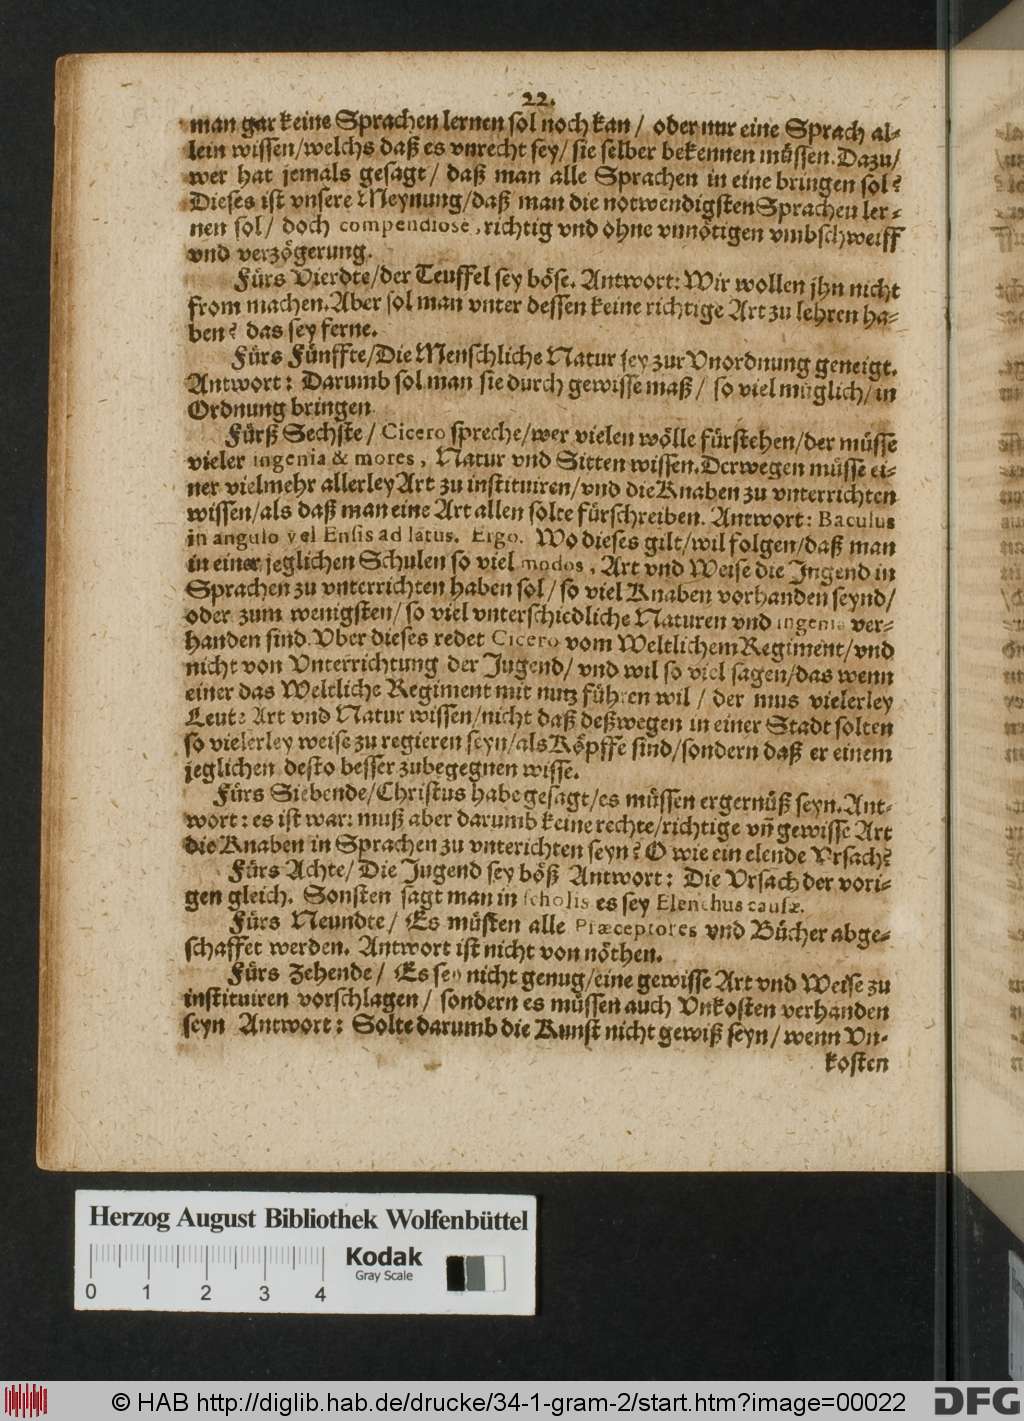 22.
man gar keine Sprachen lernen sol noch kan / oder nur eine Sprach al-
lein wissen/welchs daß es vnrecht sey/ sie selber bekennen müssen. Dazu/
wer hat jemals gesagt/ daß man alle Sprachen in eine bringen sol?
Dieses ist vnsere Meynung/daß man die notwendigsten Sprachen ler-
nen sol/ doch compendiose, richtig vnd ohne vnnötigen vmbschweiff
vnd verzögerung.
Fürs Vierdte/der Teuffel sey böse. Antwort: Wir wollen jhn nicht
from machen. Aber sol man vnter dessen keine richtige Art zu lehren ha-
ben? das sey ferne.
Fürs Fünffte/Die Menschliche Natur sey zur Vnordnung geneigt.
Antwort: Darumb sol man sie durch gewisse maß/ so viel müglich/in
Ordnung bringen.
Fürß Sechste/ Cicero spreche/wer vielen wölle fürstehen/der müsse
vieler ingenia & mores, Natur vnd Sitten wissen. Derwegen müsse ei-
ner vielmehr allerley Art zu instituiren/vnd die Knaben zu vnterrichten
wissen/als daß man eine Art allen solte fürschreiben. Antwort: Baculus
in angulo vel Ensis ad latus. Ergo. Wo dieses gilt/wil folgen/daß man
in einer jeglichen Schulen so viel modos, Art vnd Weise die Jugend in
Sprachen zu vnterrichten haben sol/ so viel Knaben vorhanden seynd/
oder zum wenigsten/ so viel vnterschiedliche Naturen vnd ingenia ver-
handen sind. Vber dieses redet Cicero vom Weltlichem Regiment/vnd
nicht von Vnterrichtung der Jugend/ vnd wil so viel sagen/das wenn
einer das Weltliche Regiment mit nutz führen wil / der mus vielerley
Leute Art vnd Natur wissen/nicht daß deßwegen in einer Stadt solten
so vielerley weise zu regieren seyn/als Köpffe sind/sondern daß er einem
jeglichen desto besser zubegegnen wisse.
Fürs Siebende/Christus habe gesagt/es müssen ergernüß seyn. Ant-
wort: es ist war: muß aber darumb keine rechte/richtige vn̄ gewisse Art
die Knaben in Sprachen zu vnterichten seyn? O wie ein elende Vrsach?
Fürs Achte/ Die Jugend sey böß Antwort: Die Vrsach der vori-
gen gleich. Sonsten sagt man in scholis es sey Elenchus causæ.
Fürs Neundte/ Es müsten alle Præceptores vnd Bücher abge-
schaffet werden. Antwort ist nicht von nöthen.
Fürs Zehende/ Es sey nicht genug/eine gewisse Art vnd Weise zu
instituiren vorschlagen/ sondern es müssen auch Vnkosten verhanden
seyn Antwort: Solte darumb die Kunst nicht gewiß seyn/wenn Vn-
kosten
Herzog August Bibliothek Wolfenbüttel
Kodak
Gray Scale
0 1 2 3 4
© HAB http://diglib.hab.de/drucke/34-1-gram-2/start.htm?image=00022
DFG